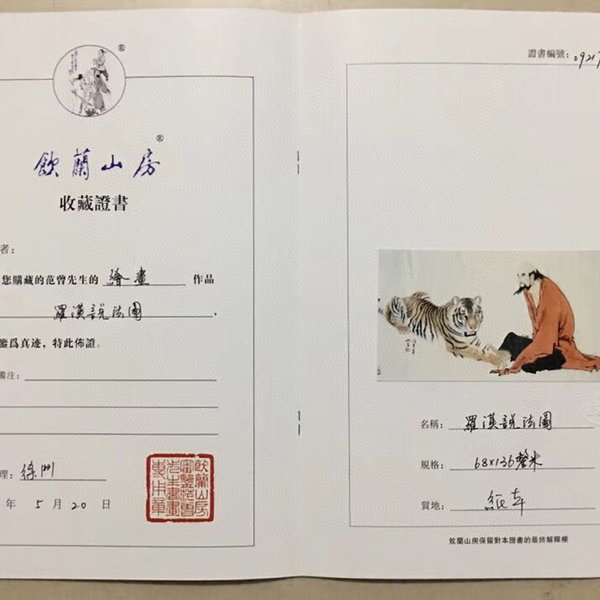 ®
飲蘭山房®
收藏證書
者：
您購藏的范曾先生的 繪畫 作品
羅漢說法圖，
鑒爲真迹，特此佈證。
備注：
理：徐
年 5 月 20 日
證書編號：0921
名稱：羅漢說法圖
規格：68×136釐米
質地：紙本
飲蘭山房保留對本證書的最終解釋權